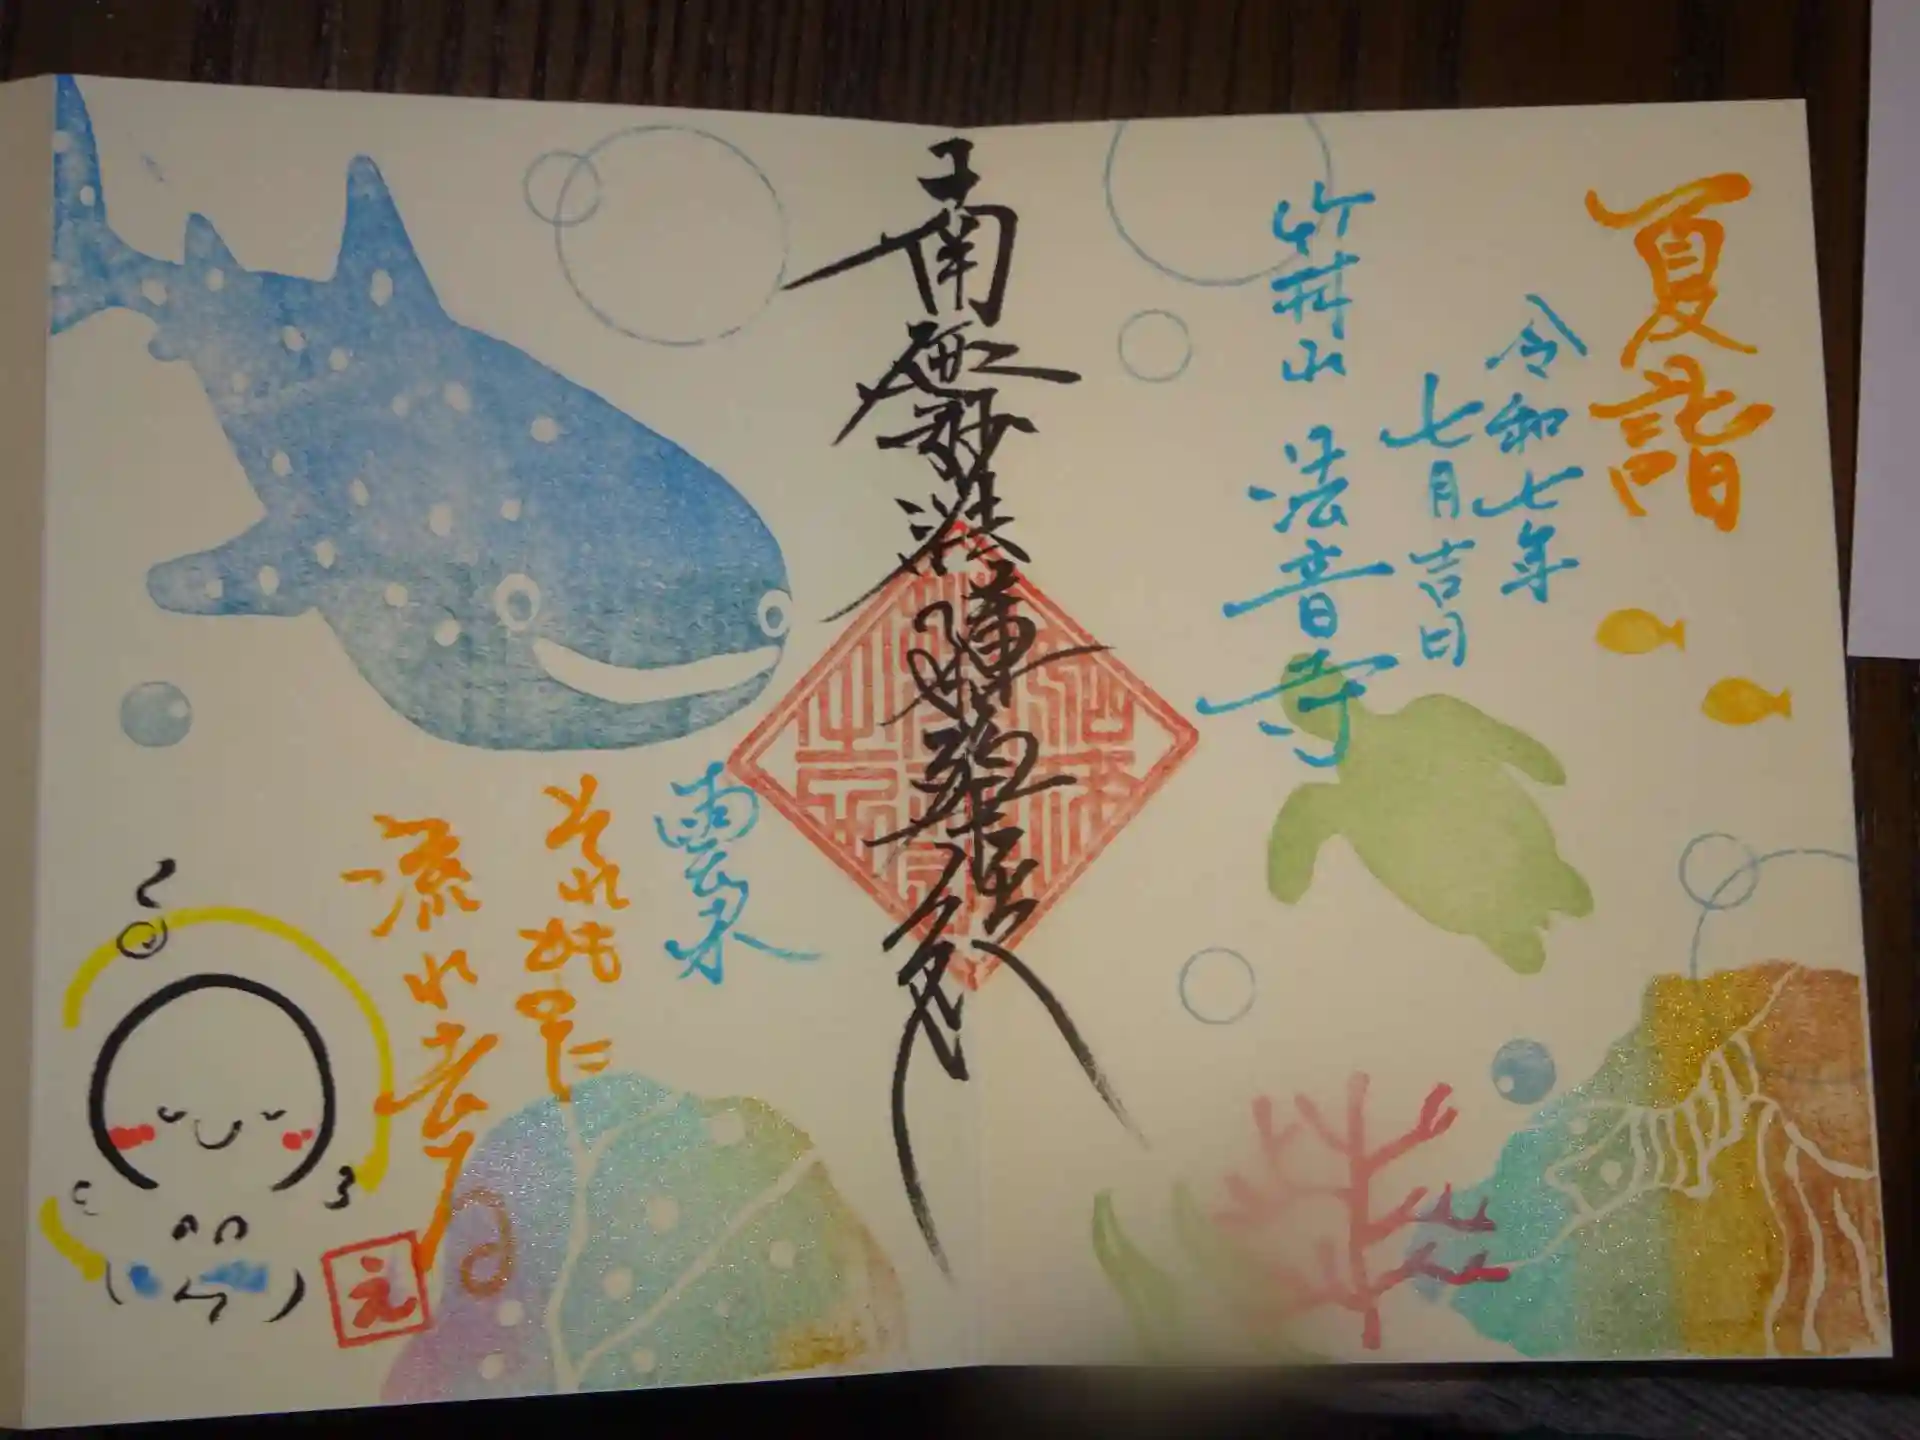 夏詣
令和七年
七月吉日
竹林山 法音寺
南無妙法蓮華経
それもまた
流れ去